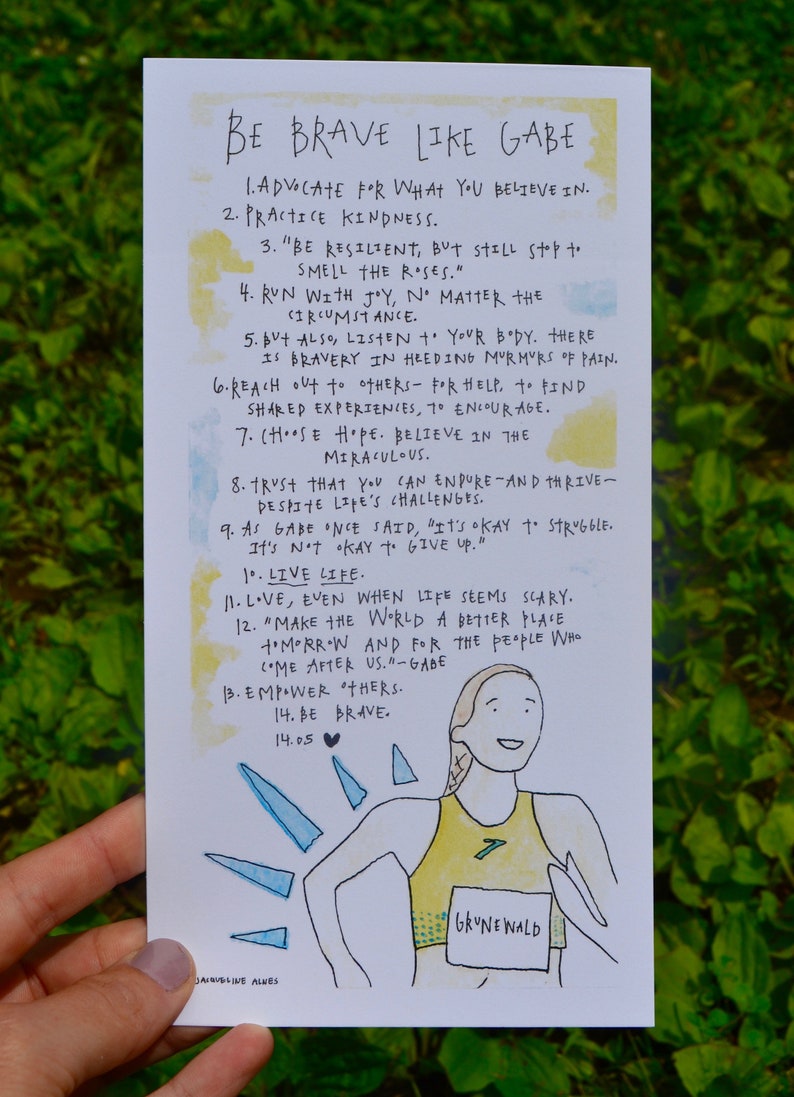 BE BRAVE LIKE GABE
1. ADVOCATE FOR WHAT YOU BELIEVE IN.
2. PRACTICE KINDNESS.
3. "BE RESILIENT, BUT STILL STOP TO
SMELL THE ROSES."
4. RUN WITH JOY, NO MATTER THE
CIRCUMSTANCE.
5. BUT ALSO, LISTEN TO YOUR BODY. THERE
IS BRAVERY IN HEEDING MURMURS OF PAIN.
6. REACH OUT TO OTHERS - FOR HELP, TO FIND
SHARED EXPERIENCES, TO ENCOURAGE.
7. CHOOSE HOPE. BELIEVE IN THE
MIRACULOUS.
8. TRUST THAT YOU CAN ENDURE - AND THRIVE -
DESPITE LIFE'S CHALLENGES.
9. AS GABE ONCE SAID, "IT'S OKAY TO STRUGGLE.
IT'S NOT OKAY TO GIVE UP."
10. LIVE LIFE.
11. LOVE, EVEN WHEN LIFE SEEMS SCARY.
12. "MAKE THE WORLD A BETTER PLACE
TOMORROW AND FOR THE PEOPLE WHO
COME AFTER US." - GABE
13. EMPOWER OTHERS.
14. BE BRAVE.
14.05 ♥
GRUNEWALD
JACQUELINE ALNES